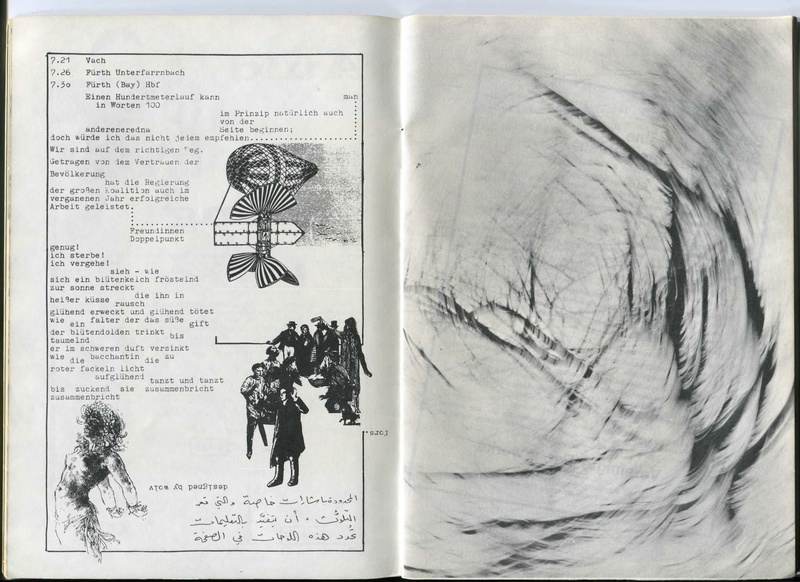 7.21 Vach
7.26 Fürth Unterfarrnbach
7.3o Fürth (Bay) Hbf
Einen Hundertmeterlauf kann man
in Worten 100
im Prinzip natürlich auch
von der
andereneredna Seite beginnen;
doch würde ich das nicht jedem empfehlen
Wir sind auf dem richtigen Weg.
Getragen von dem Vertrauen der
Bevölkerung
hat die Regierung
der großen Koalition auch im
verganenen Jahr erfolgreiche
Arbeit geleistet.
Freundinnen
Doppelpunkt
genug!
ich sterbe!
ich vergehe!
sieh - wie
sich ein blütenkelch fröstelnd
zur sonne streckt
die ihn in
heißer küsse
rausch
glühend erweckt und glühend tötet
wie falter der das süße
ein gift
der blütendolden trinkt
bis
taumelnd
er im schweren duft versinkt
wie bacchantin zu
die die
roter fackeln licht
aufglühend
tanzt und tanzt
bis zuckend sie zusammenbricht
zusammenbricht
designed by wolv
هذه اللوحات في الصفحة